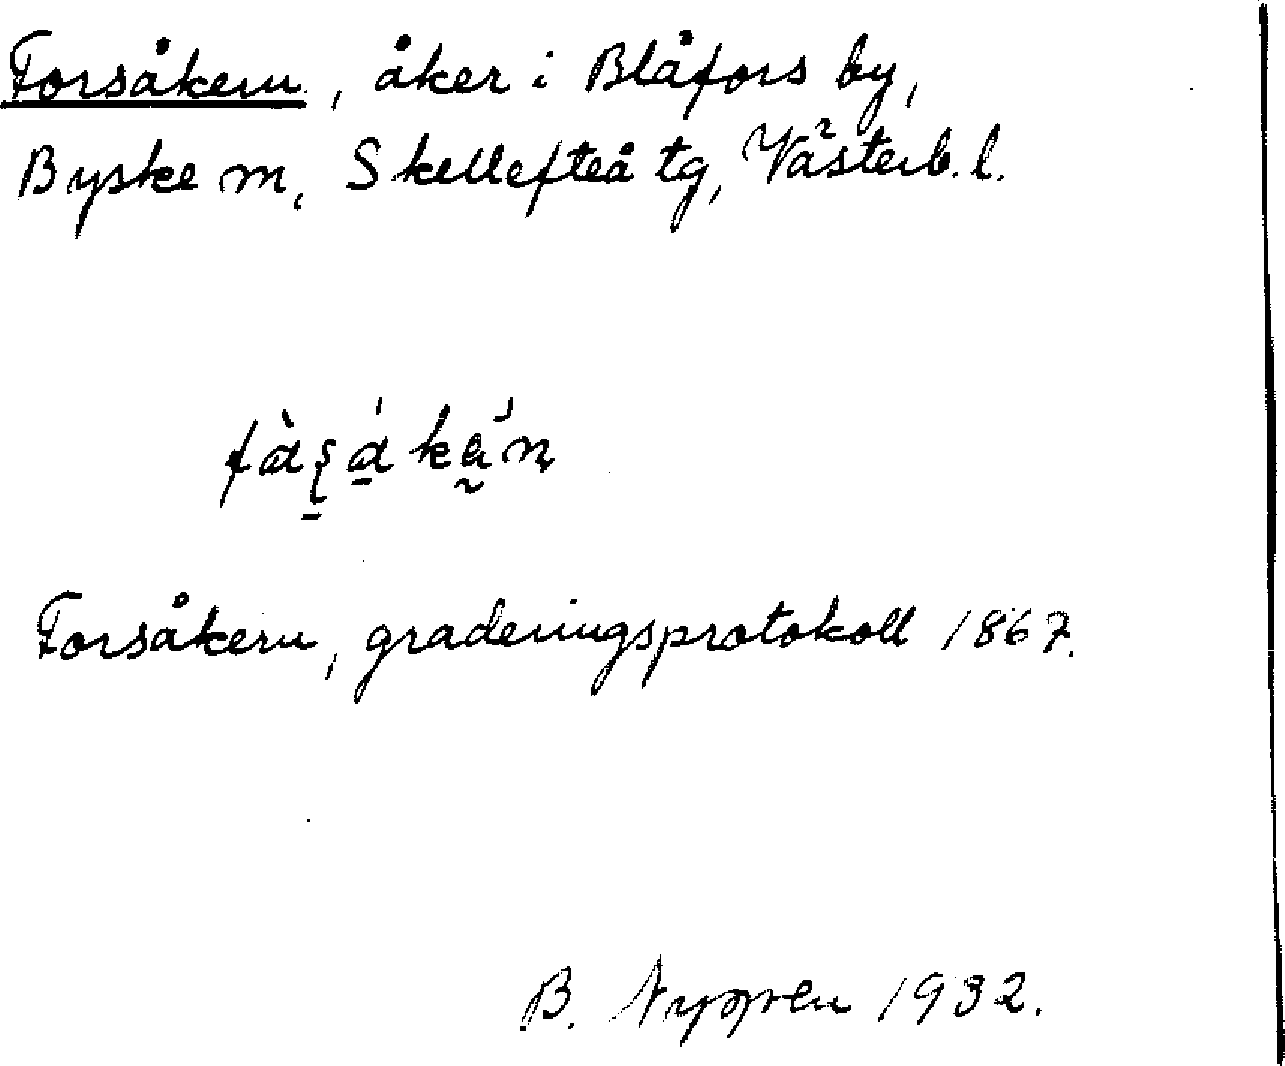 Forsåkern, åker i Blåfors by,
Byske m, Skellefteå tg, Västerb. l.
Forsåkern, graderingsprotokoll 1867.
B. 1932.